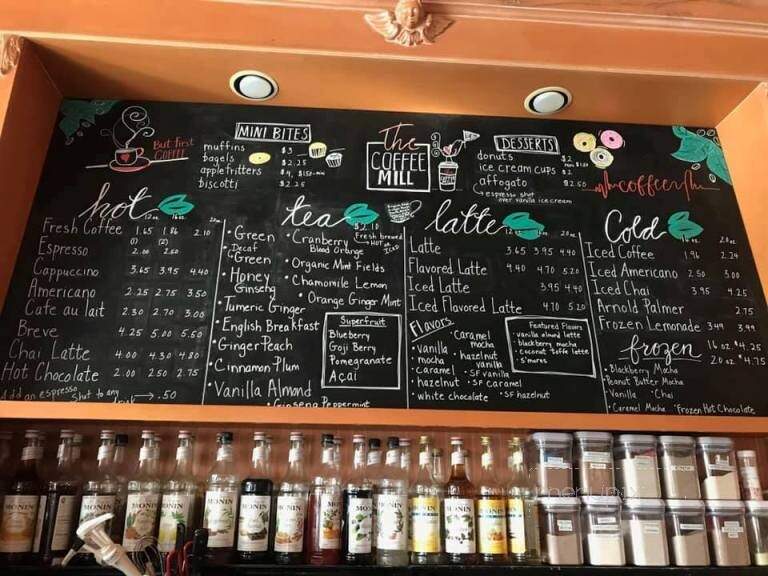 But first
COFFEE
MINI BITES
muffins $3
bagels $2.25
apple fritters $4, $1.50 mini
biscotti $2.25
The
COFFEE
MILL
DESSERTS
donuts $2
ice cream cups $2
affogato $2.50
espresso shot
over vanilla ice cream
coffee
hot
12 oz. 16 oz. 20 oz.
Fresh Coffee 1.65 1.86 2.10
(1) (2)
Espresso 2.00 2.50
Cappuccino 3.65 3.95 4.40
Americano 2.25 2.75 3.50
Cafe au lait 2.30 2.70 3.00
Breve 4.25 5.00 5.50
Chai Latte 4.00 4.30 4.80
Hot Chocolate 2.00 2.50 2.75
Add an espresso shot to any
drink → .50
tea
$2.10
Fresh brewed
HOT or ICED
• Green
• Decaf Green
• Honey Ginseng
• Tumeric Ginger
• English Breakfast
• Ginger Peach
• Cinnamon Plum
• Vanilla Almond
• Cranberry Blood Orange
• Organic Mint Fields
• Chamomile Lemon
• Orange Ginger Mint
Superfruit
Blueberry
Goji Berry
Pomegranate
Açai
• Ginseng Peppermint
latte
12 oz. 16 oz. 20 oz.
Latte 3.65 3.95 4.40
Flavored Latte 4.40 4.70 5.20
Iced Latte 3.95 4.40
Iced Flavored Latte 4.70 5.20
Flavors
• vanilla
• mocha
• caramel
• hazelnut
• white chocolate
• Caramel mocha
• hazelnut vanilla
• SF vanilla
• SF caramel
• SF hazelnut
Featured Flavors
• vanilla almond latte
• blackberry mocha
• coconut toffee latte
• s'mores
Cold
16 oz. 20 oz.
Iced Coffee 1.96 2.24
Iced Americano 2.50 3.00
Iced Chai 3.95 4.25
Arnold Palmer 2.75
Frozen Lemonade 3.49 3.99
frozen
16 oz $4.25
20 oz $4.75
• Blackberry Mocha
• Peanut Butter Mocha
• Vanilla • Chai
• Caramel Mocha • Frozen Hot Chocolate
MONIN
MONIN
MONIN
MONIN
MONIN
MONIN
MONIN
MONIN
MONIN
MONIN
MONIN
MONIN